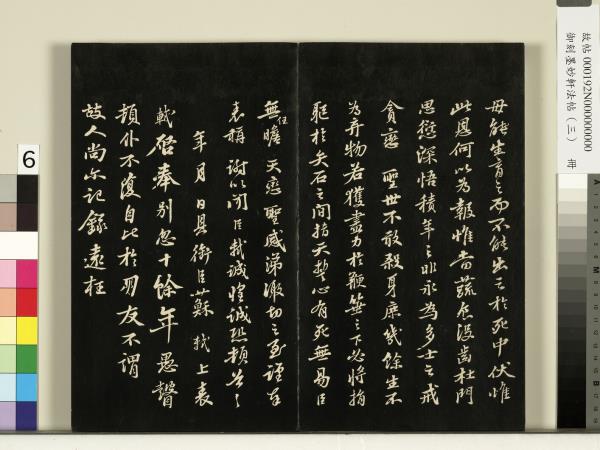 母能生育之而不能出之於死中伏惟
此恩何以為報惟當蔬食沒齒杜門
思愆深悟積年之非永為多士之戒
貪戀聖世不敢殺身庶幾餘生不
為弃物若獲盡力於鞭箠之下必將捐
軀於矢石之間指天誓心有死無易臣
無任瞻天戀聖感涕激切之至謹奉
表稱謝以聞臣軾誠惶誠恐頓首頓首
年月日具銜臣蘇軾上表
軾啓奉別忽十餘年愚瞽
頓仆不復自比於朋友不謂
故人尚尓記錄遠枉
故帖 000192N000000000 冊
御刻墨妙軒法帖（三）
6